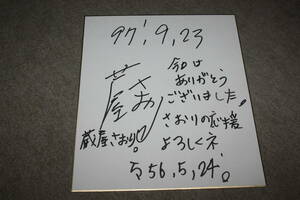 97! 9, 23
今日は
ありがとう
ございました!
さおりの応援
よろしくネ
蔵屋さおり
S 56, 5, 24!